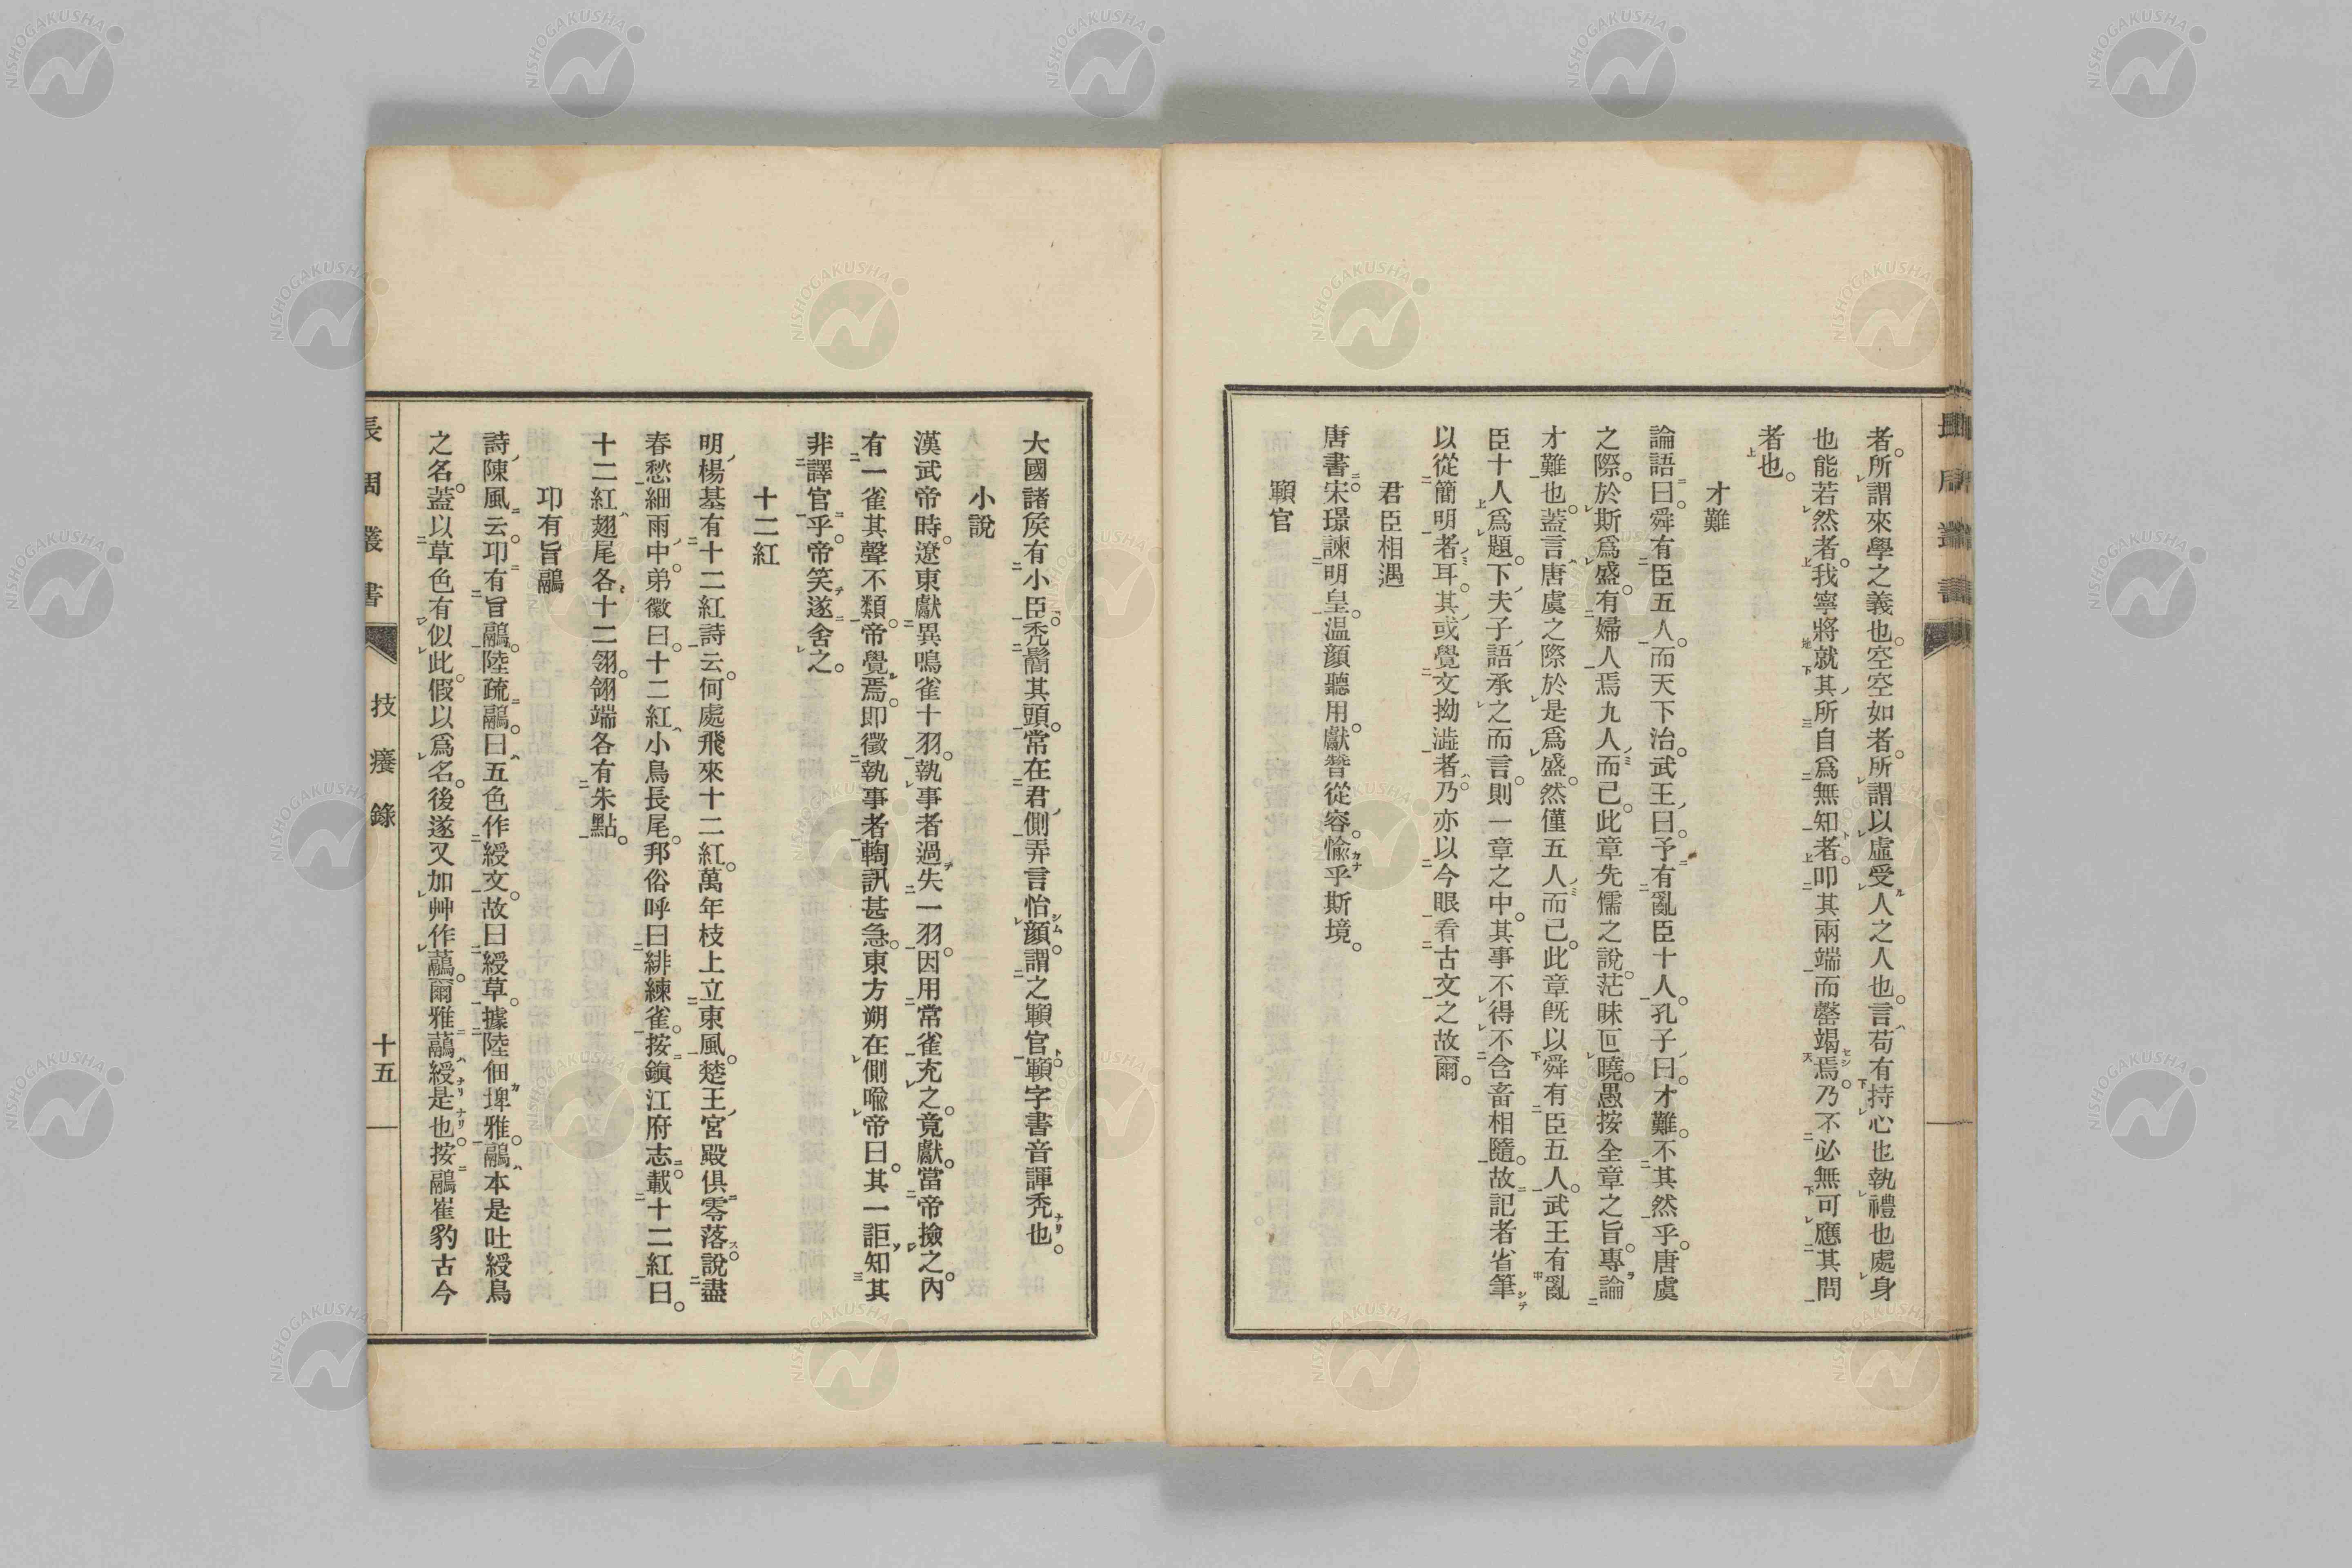 者。所謂來學之義也。空空如者。所謂以虛受人之人也。言苟有持心也執禮也處身
也能若然者。我寧將就其所自爲無知者。叩其兩端而罄竭焉。乃不必無可應其問
者也。
才難
論語曰。舜有臣五人。而天下治。武王曰。予有亂臣十人。孔子曰。才難。不其然乎。唐虞
之際。於斯爲盛。有婦人焉九人而已。此章先儒之說茫昧叵曉。愚按全章之旨。專論
才難也。蓋言唐虞之際於是爲盛。然僅五人而已。此章既以舜有臣五人。武王有亂
臣十人爲題。下夫子語承之而言。則一章之中。其事不得不含畜相隨。故記者省筆
以從簡明者耳。其或覺文拗澁者。乃亦以今眼看古文之故爾。
君臣相遇
唐書。宋璟諫明皇。温顏聽用。獻替從容。愉乎斯境。
顐官
大國諸侯有小臣。禿鬅其頭。常在君側弄言怡顏。謂之顐官。顐字書音諢禿也。
小說
漢武帝時。遼東獻異鳴雀十羽。執事者過失一羽。因用常雀充之。竟獻。當帝撿之。內
有一雀其聲不類。帝覺焉。即徵執事者鞫訊甚急。東方朔在側喩帝曰。其一詎知其
非譯官乎。帝笑遂舍之。
十二紅
明楊基有十二紅詩云。何處飛來十二紅。萬年枝上立東風。楚王宮殿俱零落。說盡
春愁細雨中。弟徽曰。十二紅小鳥長尾。邦俗呼曰緋練雀。按鎭江府志。載十二紅曰。
十二紅翅尾各十二翎。翎端各有朱點。
卭有旨鷊
詩陳風云。卭有旨鷊。陸疏鷊。曰五色作綬文。故曰綬草。據陸佃埤雅。鷊本是吐綬鳥
之名。蓋以草色有似此。假以爲名。後遂又加艸作虉。爾雅虉綬是也。按鷊崔豹古今
長周叢書
技癢錄
十五
NISHOGAKUSHA